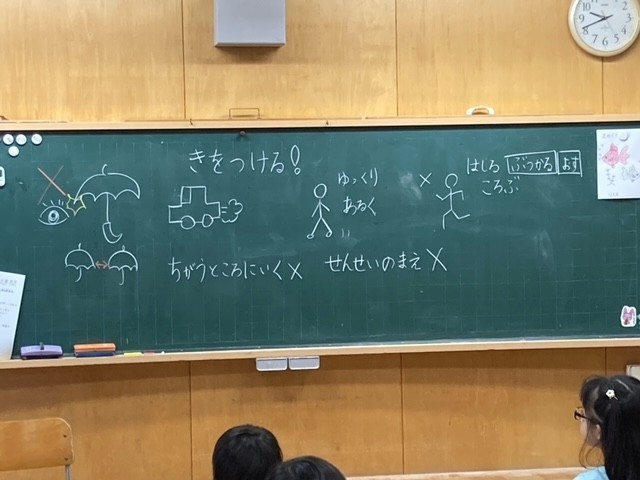 きをつける!
ゆっくり
あるく
×
はしる ぶつかる おす
ころぶ
ちがうところにいく×
せんせいのまえ×